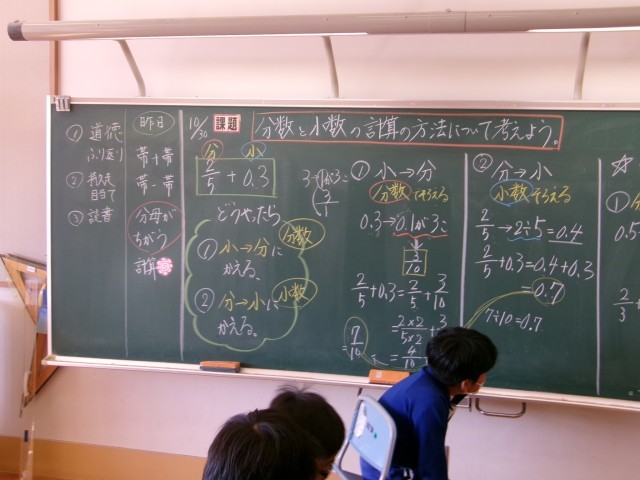 ① 道徳
ふり返り
②
目当て
③ 読書
昨日
帯+帯
帯-帯
分母が
ちがう
計算
10/30 課題 分数と小数の計算の方法について考えよう。
分 小
2/5 + 0.3
どうやったら
① 小→分に 分数
かえる。
② 分→小に 小数
かえる。
3→1が3こ
3/1
① 小→分
分数でそろえる
0.3→0.1が3こ
3/10
2/5+0.3=2/5+3/10
=2×2/5×2+3
=4/10
=7/10
② 分→小
小数でそろえる
2/5→2÷5=0.4
2/5+0.3=0.4+0.3
=0.7
7÷10=0.7
☆
①
0.5
2/3